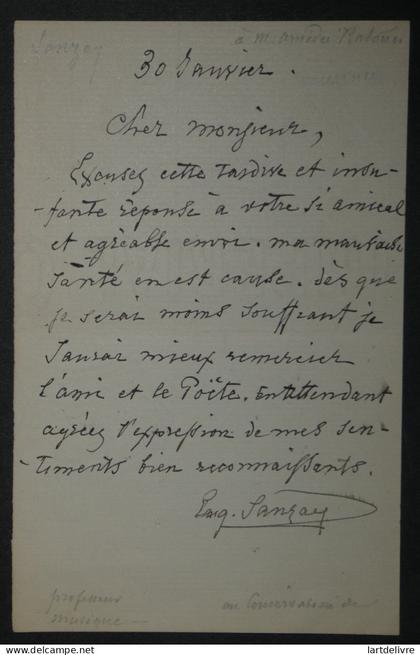 Sauzay
à M. Amédée
30 Janvier.
Cher monsieur,
Excusez cette tardive et insu-
-fante réponse à votre si amical
et agréable envoi. ma mauvaise
santé en est cause. dès que
je serai moins souffrant je
saurai mieux remercier
l'ami et le Poëte. En attendant
agréez l'expression de mes sen-
-timents bien reconnaissants.
Eug. Sauzay
professeur au Conservatoire de
musique —
www.lartdelivre.com | lartdelivre